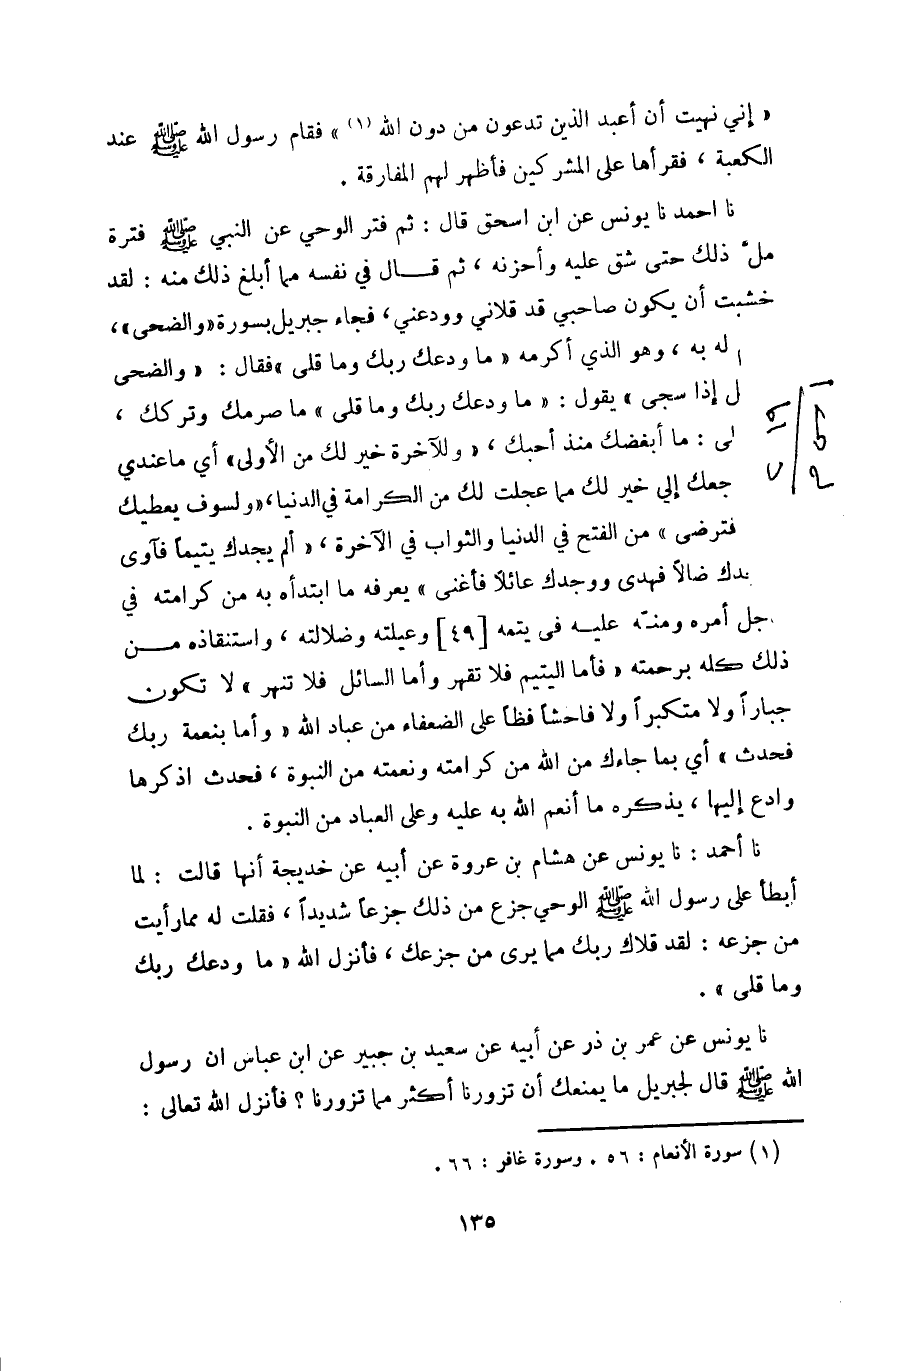 « إني نهيت أن أعبد الذين تدعون من دون الله (١) » فقام رسول الله ﷺ عند
الكعبة ، فقرأها على المشركين فأظهر لهم المفارقة .
نا احمد نا يونس عن ابن اسحق قال : ثم فتر الوحي عن النبي ﷺ فترة
من ذلك حتى شق عليه وأحزنه ، ثم قال في نفسه مما أبلغ ذلك منه : لقد
خشيت أن يكون صاحبي قد قلاني وودعني ، فجاء جبريل بسورة «والضحى» ،
له به ، وهو الذي أكرمه « ما ودعك ربك وما قلى »فقال : « والضحى
ل إذا سجى » يقول : « ما ودعك ربك وما قلى » ما صرمك وتركك ،
لى : ما أبغضك منذ أحبك ، « وللآخرة خير لك من الأولى» أي ماعندي
جعك إلي خير لك مما عجلت لك من الكرامة في الدنيا ،«ولسوف يعطيك
فترضى » من الفتح في الدنيا والثواب في الآخرة ، « ألم يجدك يتيماً فآوى
بدك ضالاً فهدى ووجدك عائلاً فأغنى » يعرفه ما ابتدأه به من كرامته في
جل أمره ومنه عليه في يتمه [٤٩] وعيلته وضلالته ، واستنقاذه من
ذلك كله برحمته « فأما اليتيم فلا تقهر وأما السائل فلا تنهر » لا تكون
جباراً ولا متكبراً ولا فاحشاً فظاً على الضعفاء من عباد الله « وأما بنعمة ربك
فحدث » أي بما جاءك من الله من كرامته ونعمته من النبوة ، فحدث اذكرها
وادع إليها ، يذكره ما أنعم الله به عليه وعلى العباد من النبوة .
نا أحمد : نا يونس عن هشام بن عروة عن أبيه عن خديجة أنها قالت : لما
أبطأ على رسول الله ﷺ الوحي جزع من ذلك جزعاً شديداً ، فقلت له مما رأيت
من جزعه : لقد قلاك ربك مما يرى من جزعك ، فأنزل الله « ما ودعك ربك
وما قلى » .
نا يونس عن عمر بن ذر عن أبيه عن سعيد بن جبير عن ابن عباس ان رسول
الله ﷺ قال لجبريل ما يمنعك أن تزورنا أكثر مما تزورنا ؟ فأنزل الله تعالى :
(١) سورة الأنعام : ٥٦ . وسورة غافر : ٦٦ .
١٣٥